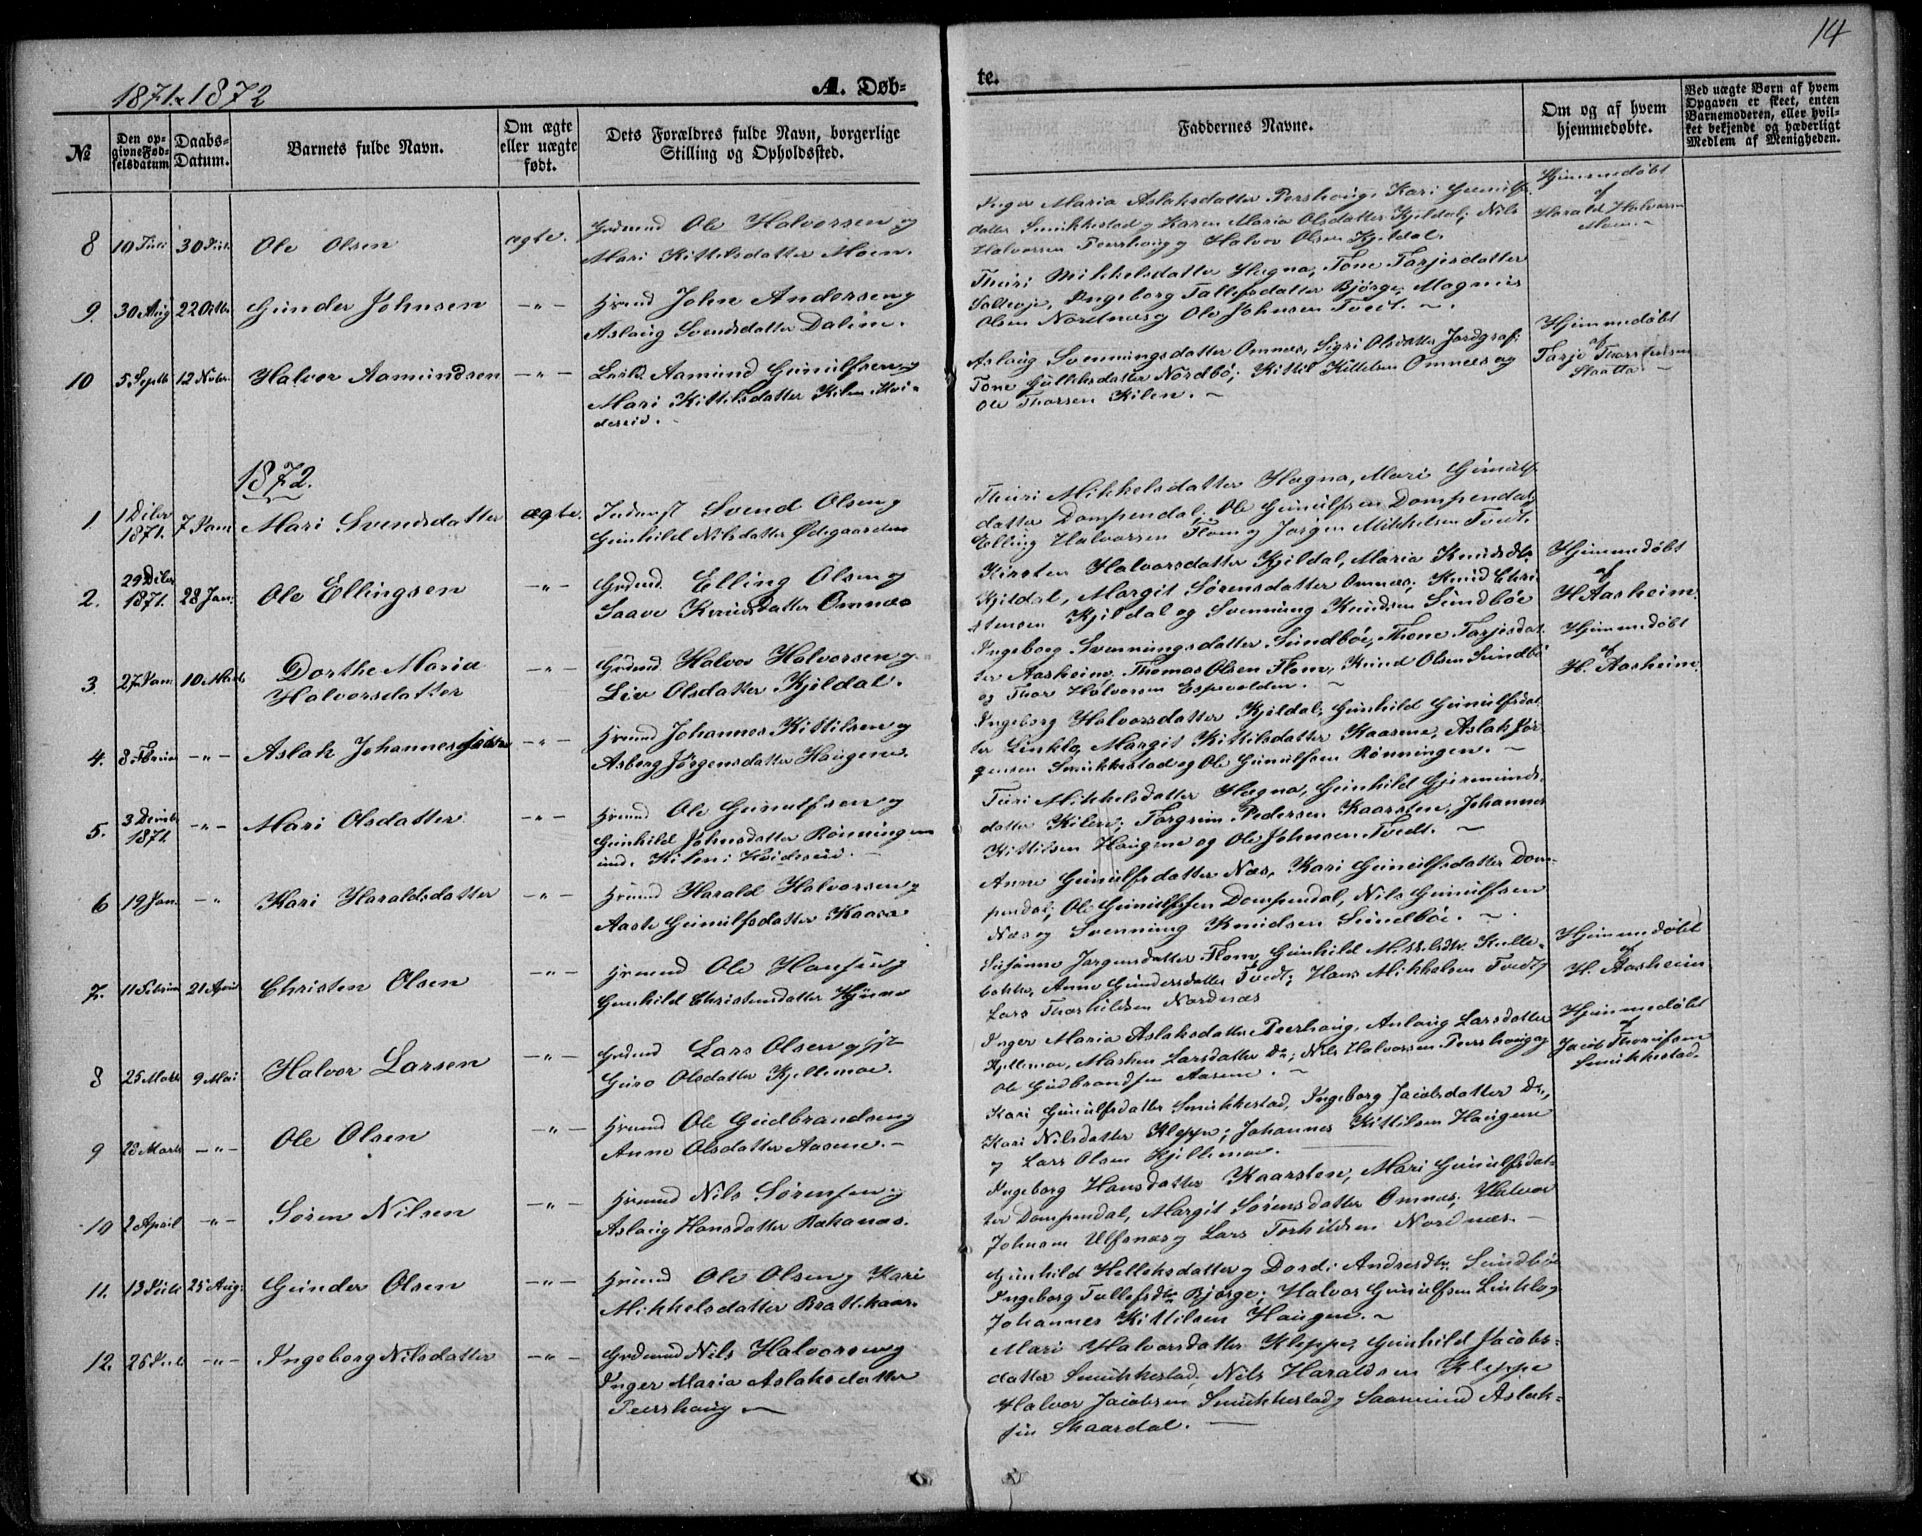 14
1871 & 1872
A. Døb-
te.
№
Den op-
givne Fød-
selsdatum
Daabs-
Datum.
Barnets fulde Navn.
Om ægte
eller uægte
født.
Dets Forældres fulde Navn, borgerlige
Stilling og Opholdssted.
Faddernes Navne.
Om og af hvem
hjemmedøbte.
Ved uægte Børn af hvem
Opgaven er skeet, enten
Barnemoderen, eller hvil-
ket bekjendt og hæderligt
Medlem af Menigheden.
8
10 Juli
30 Juli
Ole Olsen
ægte.
Grdmnd Ole Halvorsen og
Mari Kittilsdatter Moen.
Inger Maria Aslaksdatter Pershoug, Kari Gunulfs-
datter Smukkestad og Karen Maria Olsdatter Kjeldal; Nils
Halvorsen Peershoug og Halvor Olsen Kjeldal.
Hjemmedøbt
af
Harald Halvorsen
Moen.
9.
30 Aug
22 Octbr
Gunder Johnsen
-"-
Hmnd John Andersen og
Aslaug Svendsdatter Dalene.
Thuri Mikkelsdatter Hegna, Tone Tarjesdatter
Ingeborg Tallefsdatter Bjørge; Magnus
Olsen Nordnæs og Ole Johnsen Tvedt.
10
5 Septb
12 Novbr
Halvor Aamundsen
-"-
Aamund Gunulfsen og
Mari Kittilsdatter Kilen i Hvi-
deseid.
Aslaug Svenningsdatter Omnæs, Sigri Olsdatter Jordgraf;
Tone Gulleksdatter Nordbö; Kittil Kittelsen Omnæs og
Ole Thorsen Kilen.
Hjemmedøbt
af
Tarje Thorsteinsen
1872.
1.
1 Decbr
1871.
7 Jan
Mari Svendsdatter
ægte.
Inderst Svend Olsen og
Gunhild Nilsdatter Ødegaarden
Thuri Mikkelsdatter Hægna, Mari Gunulfs-
datter Dompendal. Ole Gunulfsen Dompendal,
Elling Halvorsen Flom og Jørgen Mikkelsen Tvedt.
2.
29 Decbr
1871.
28 Jan.
Ole Ellingsen
-"-
Grdmnd. Elling Olsen og
Saave Knudsdatter Omnæs
Kirsten Halvorsdatter Kjeldal, Maria Knudsdtr
Kjeldal, Margit Sørensdatter Omnæs; Knud Chri-
stensen Kjeldal og Svenning Knudsen Sundböe
Hjemmedøbt
af
H. Aasheim.
3.
27 Jan
10 Marts
Dorthe Maria
Halvorsdatter
-"-
Grdmnd Halvor Halvorsen og
Liv Olsdatter Kjeldal.
Ingeborg Svenningsdatter Sundböe, Thone Tarjesdat-
ter Aasheim, Thomas Olsen Flom, Knud Olsen Sundbö
og Thor Halvorsen Espevolden.
Hjemmedøbt
af
H. Aasheim.
4.
8 Februar
-"-
Aslak Johannessen
-"-
Hmnd Johannes Kittilsen og
Asborg Jørgensdatter Haugene.
Ingeborg Halvorsdatter Kjeldal; Gunhild Gunulfsdat-
ter Lenklo, Margit Kittilsdatter Kaasene, Aslak Jör-
gensen Smukkestad og Ole Gunulfsen Rønningen.
5.
3 Decbr
1871.
-"-
Mari Olsdatter
-"-
Hmnd Ole Gunulfsen og
Gunhild Johnsdatter Rønningen
und. Kilen i Hvideseid.
Turi Mikkelsdatter Hægna, Gunhild Gjermunds-
datter Kilen; Torgrim Pedersen Kaarsten, Johannes
Kittilsen Haugene og Ole Johnsen Tvedt.
6
19 Jan
-"-
Kari Haraldsdatter
-"-
Hmnd Harald Halvorsen og
Aaste Gunulfsdatter Kaasa
Anne Gunulfsdatter Næs, Kari Gunulfsdatter Dom-
pendal; Ole Gunulfsen Dompendal, Nils Gunulfsen
Næs og Svenning Knudsen Sundböe.
7.
11 Februar
21 April
Christen Olsen
-"-
Hmnd Ole Hansen og
Gunhild Christensdatter
Susanne Jørgensdatter Flom, Gunhild Mikkelsdtr
bakke, Anne Gundersdatter Tvedt; Hans Mikkelsen Tvedt og
Lars Thorkildsen Nordnæs
Hjemmedøbt
af
H. Aasheim
8
25 Marts
9 Mai
Halvor Larsen
-"-
Grdmnd Lars Olsen og
Guro Olsdatter Kjellemoe.
Inger Maria Aslaksdatter Peershoug, Aslaug Larsdatter
Kjellemoe, Larsdatter Do; Nils Halvorsen Peershoug og
Ole Gudbrandsen Aasene.
Hjemmedøbt
af
Jacob
Smukkestad.
9
28 Marts
-"-
Ole Olsen
-"-
Hmnd Ole Gudbrandsen og
Anne Olsdatter Aasene.
Kari Gunulfsdatter Smukkestad, Ingeborg Jacobsdatter Do,
Kari Nilsdatter Kleppe; Johannes Kittilsen Haugene
og Lars Olsen Kjellemoe.
10
2 April
-"-
Søren Nilsen
-"-
Hmnd Nils Sørensen og
Aslaug Hansdatter
Ingeborg Hansdatter Kaarsten, Mari Gunulfsdat-
ter Dompendal, Margit Sørensdatter Omnæs; Halvor
Johnsen Ulfsnæs og Lars Torkildsen Nordnæs.
11.
13 Juli
25 Aug:
Gunder Olsen
-"-
Hmnd Ole Olsen og Kari
Mikkelsdatter
Gunhild Helleksdatter og Andresdtr. Sundböe
Ingeborg Tallefsdtr Bjørge; Halvor Gunulfsen Lenklo og
Johannes Kittilsen Haugene.
12.
26 Juli
-"-
Ingeborg Nilsdatter
-"-
Grdmnd Nils Halvorsen og
Inger Maria Aslaksdatter
Peershoug
Mari Halvorsdatter Kleppe, Gunhild Jacobs-
datter Smukkestad; Nils Haraldsen Kleppe
Halvor Jacobsen Smukkestad og Saamund Aslak-
sen Skaardal.